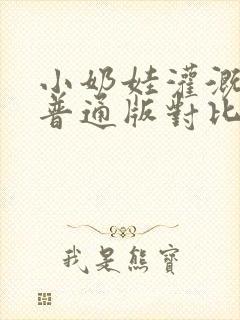 小奶娃灌溉
普通版對比
我是熊寶